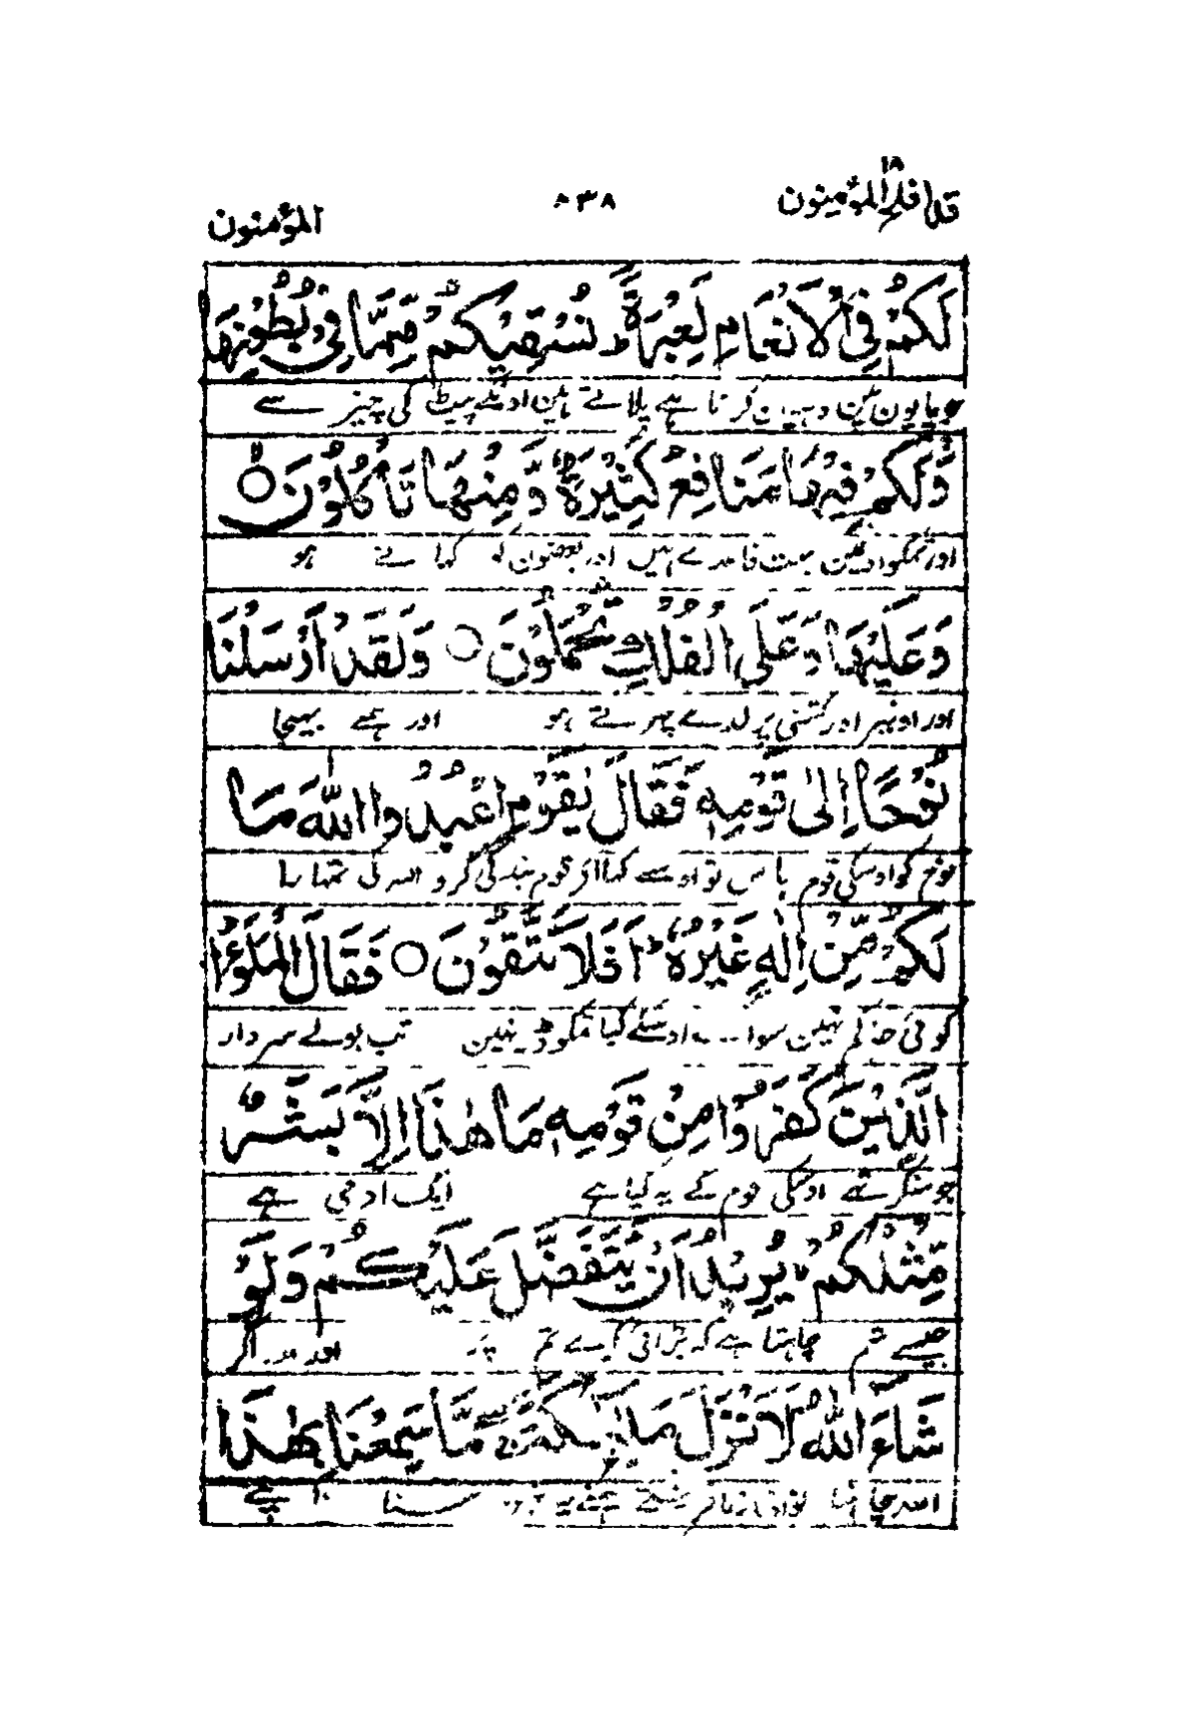 ۱۸
قد افلح المؤمنون ۵۳۸ المؤمنون
لَكُمْ فِي الْاَنْعَامِ لَعِبْرَةً ؕ نُسْقِيْكُمْ مِّمَّا فِيْ بُطُوْنِهَا
چوپایون مین دہیان کرنا ہے پلاتے ہین اونکے پیٹ کی چیز سے
وَلَكُمْ فِيْهَا مَنَافِعُ كَثِيْرَةٌ وَّمِنْهَا تَاْكُلُوْنَ ۙ○
اور تمکو اونمین بہت فائدے ہیں اور بعضون کو کھاتے ہو
وَعَلَيْهَا وَعَلَى الْفُلْكِ تُحْمَلُوْنَ ○ وَلَقَدْ اَرْسَلْنَا
اور اونپر اور کشتی پر لدے پھرتے ہو اور ہمنے بہیجا
نُوْحًا اِلٰى قَوْمِهٖ فَقَالَ يٰقَوْمِ اعْبُدُوا اللّٰهَ مَا
نوح کو اوسکی قوم پاس تو اوسنے کہا اے قوم بندگی کرو اللہ کی تمہارا
لَكُمْ مِّنْ اِلٰهٍ غَيْرُهٗ ؕ اَفَلَا تَتَّقُوْنَ ○ فَقَالَ الْمَلَؤُا
کوئی حاکم نہین سوا اوسکے کیا تمکو ڈر نہین تب بولے سردار
الَّذِيْنَ كَفَرُوْا مِنْ قَوْمِهٖ مَا هٰذَا اِلَّا بَشَرٌ
جو منکر تھے اوسکی قوم کے یہ کیا ہے ایک آدمی ہے
مِّثْلُكُمْ ۙ يُرِيْدُ اَنْ يَّتَفَضَّلَ عَلَيْكُمْ وَلَوْ
جیسے تم چاہتا ہے کہ بڑائی کرے تم پر اور اگر
شَآءَ اللّٰهُ لَاَنْزَلَ مَلٰٓئِكَةً مَّا سَمِعْنَا بِهٰذَا
اللہ چاہتا تو اوتارتا فرشتے ہمنے یہ سنا